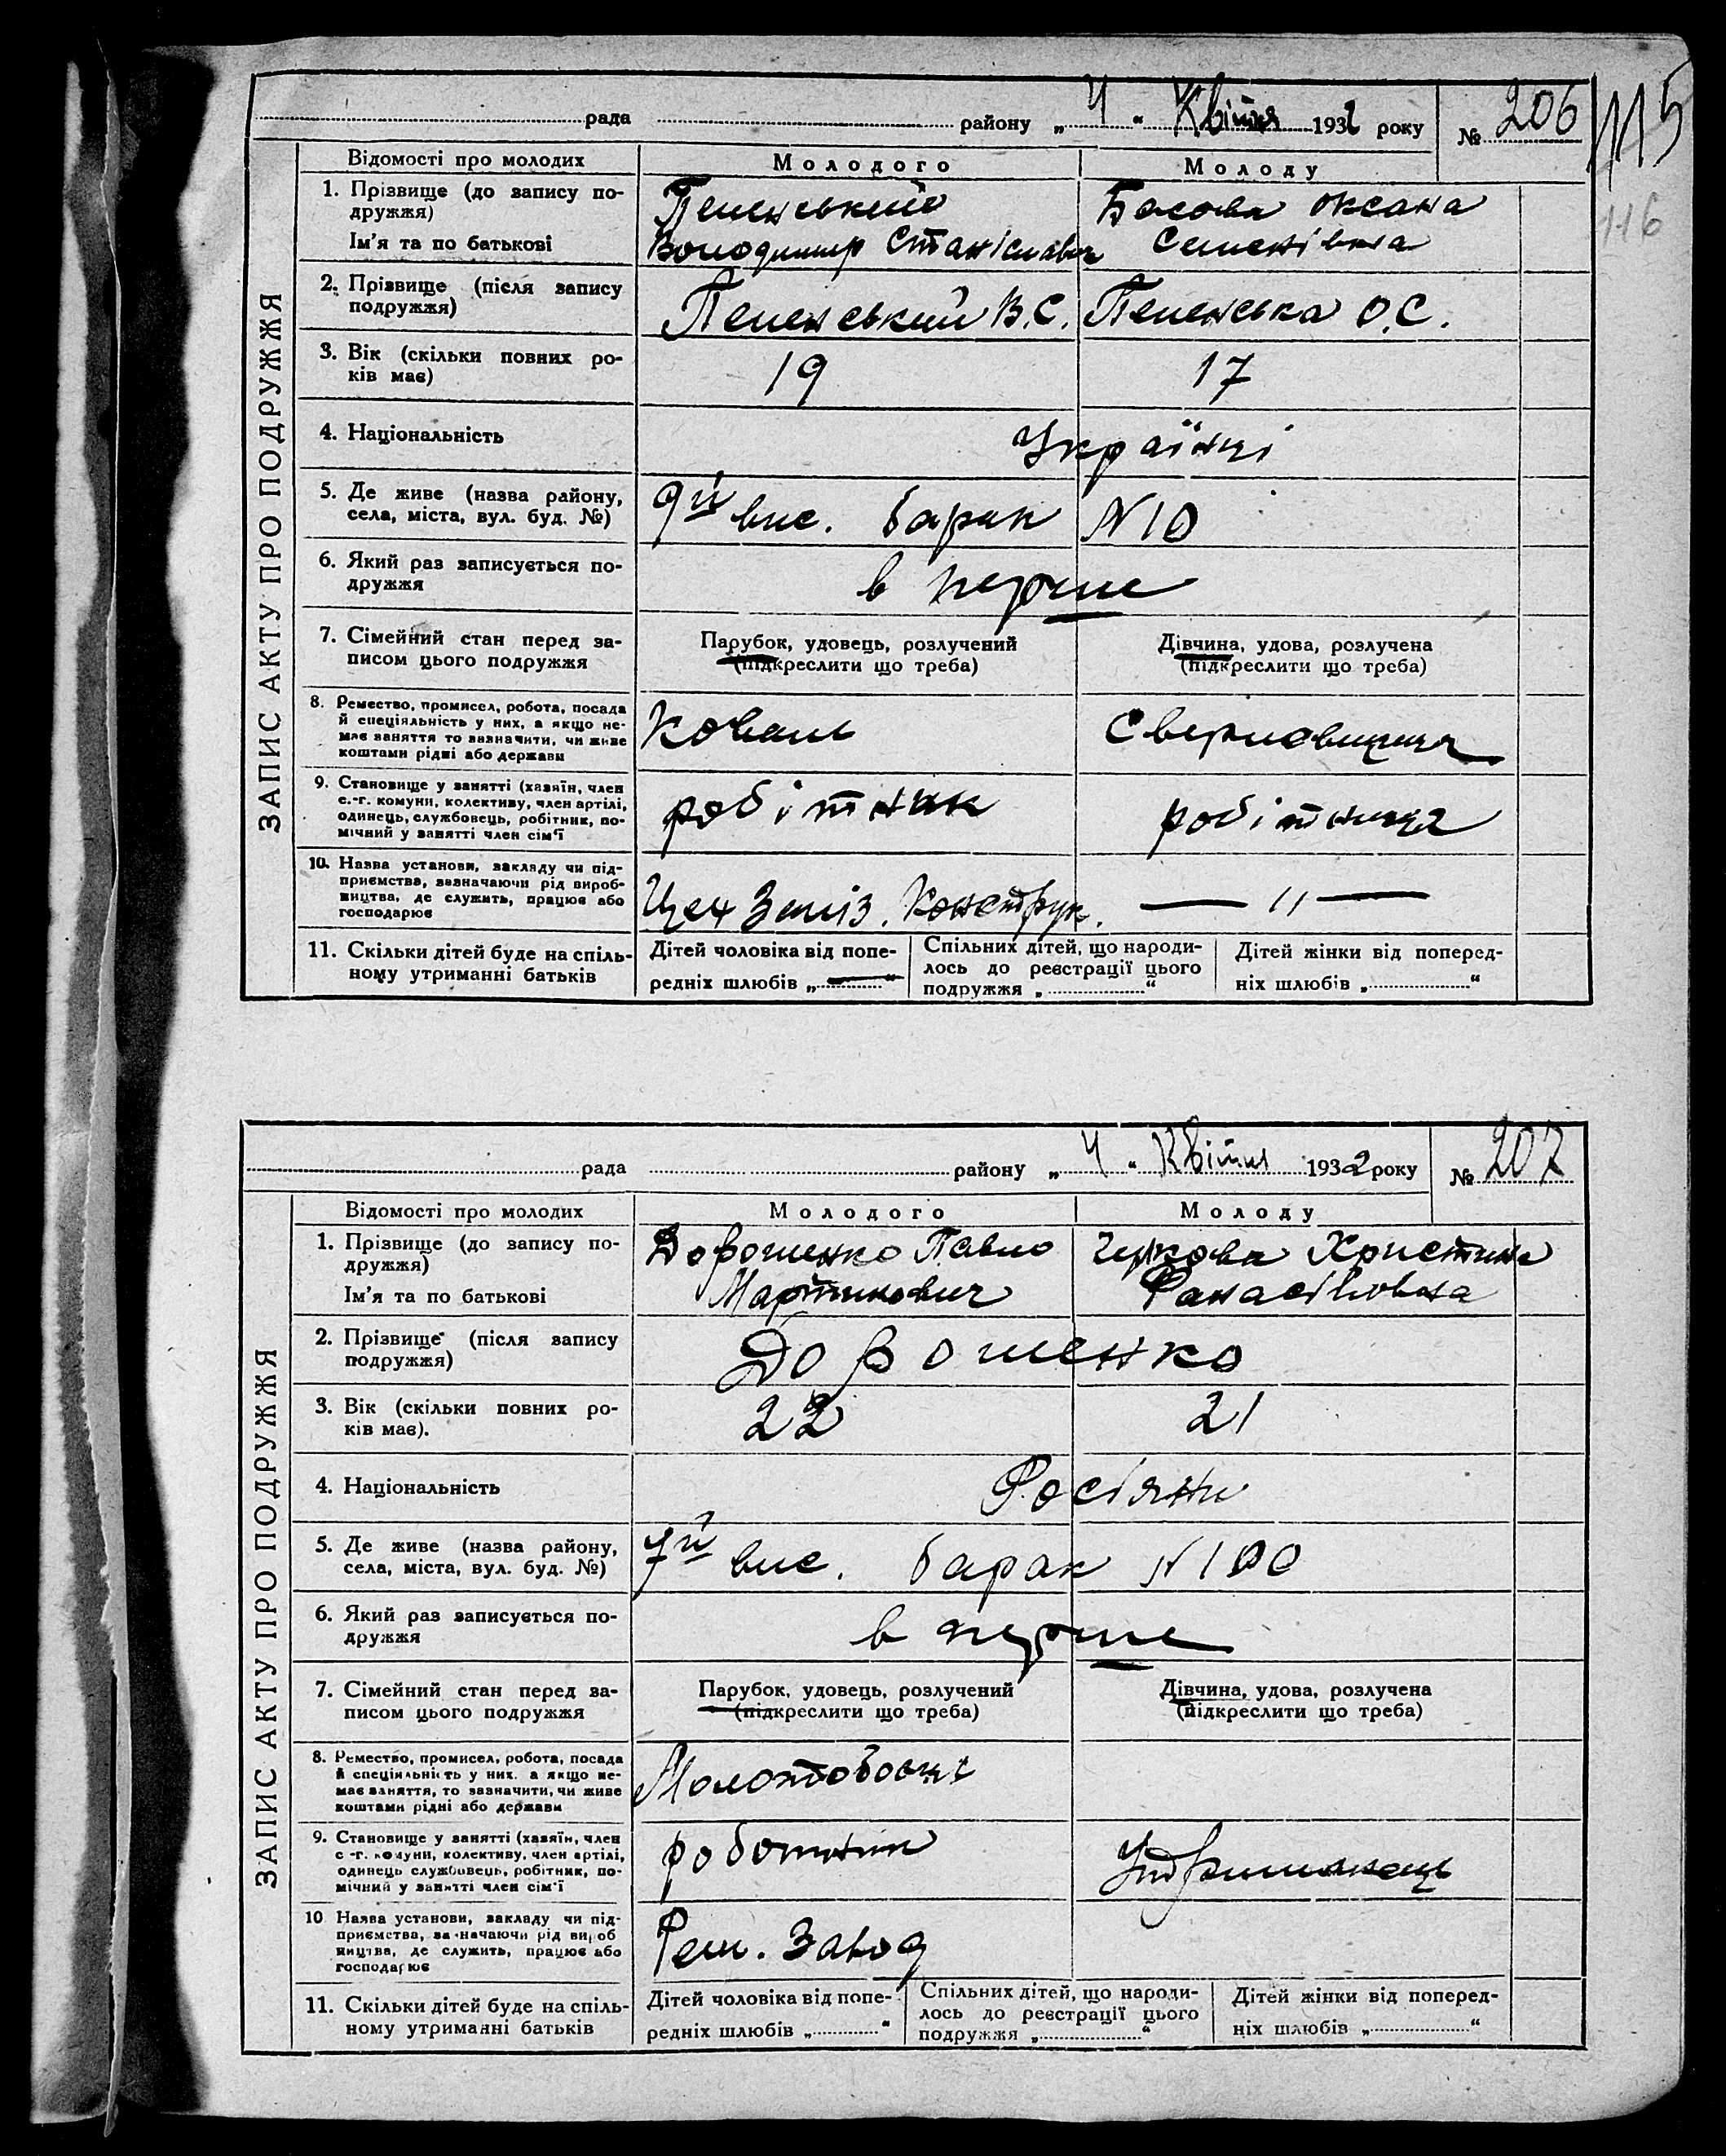 рада району „ 4 “ Квітня 1932 року № 206
115
116
ЗАПИС АКТУ ПРО ПОДРУЖЖЯ
Відомості про молодих Молодого Молоду
1. Прізвище (до запису по-
дружжя)
Ім'я та по батькові
Володимир Станіславич
Басова Оксана
Семенівна
2. Прізвище (після запису
подружжя)
3. Вік (скільки повних ро-
ків має)
19 17
4. Національність
Українці
5. Де живе (назва району,
села, міста, вул. буд. №)
9й вис. барак N 10
6. Який раз записується по-
дружжя
в перше
7. Сімейний стан перед за-
писом цього подружжя
Парубок, удовець, розлучений
(підкреслити що треба)
Дівчина, удова, розлучена
(підкреслити що треба)
8. Ремество, промисел, робота, посада
й спеціяльність у них, а якщо не-
має заняття то зазначити, чи живе
коштами рідні або держави
Коваль
9. Становище у занятті (хазяїн, член
с.-г. комуни, колективу, член артілі,
одинець, службовець, робітник, по-
мічний у занятті член сім'ї
робітник робітниця
10. Назва установи, закладу чи під-
приємства, зазначаючи рід вироб-
ництва, де служить, працює або
господарює
Цех Заліз. Конструк. — 11 —
11. Скільки дітей буде на спіль-
ному утриманні батьків
Дітей чоловіка від попе-
редніх шлюбів „ — “
Спільних дітей, що народи-
лось до реєстрації цього
подружжя „ “
Дітей жінки від поперед-
ніх шлюбів „ “
рада району „ 4 “ Квітня 1932 року № 207
ЗАПИС АКТУ ПРО ПОДРУЖЖЯ
Відомості про молодих Молодого Молоду
1. Прізвище (до запису по-
дружжя)
Ім'я та по батькові
Дорошенко Павло
Мартинович
Христина
2. Прізвище (після запису
подружжя)
Дорошенко
3. Вік (скільки повних ро-
ків має).
22 21
4. Національність
Росіяни
5. Де живе (назва району,
села, міста, вул. буд. №)
7й вис. барак N 100
6. Який раз записується по-
дружжя
в перше
7. Сімейний стан перед за-
писом цього подружжя
Парубок, удовець, розлучений
(підкреслити що треба)
Дівчина, удова, розлучена
(підкреслити що треба)
8. Ремество, промисел, робота, посада
й спеціяльність у них, а якщо не-
має заняття, то зазначити, чи живе
коштами рідні або держави
9. Становище у занятті (хазяїн, член
с-г. комуни, колективу, член артілі,
одинець службовець, робітник, по-
мічний у занятті член сім'ї
10 Назва установи, закладу чи під-
приємства, зазначаючи рід вироб
ництва, де служить, працює або
господарює
Рем. Завод
11. Скільки дітей буде на спіль-
ному утриманні батьків
Дітей чоловіка від попе-
редніх шлюбів „ “
Спільних дітей, що народи-
лось до реєстрації цього
подружжя „ “
Дітей жінки від поперед-
ніх шлюбів „ “